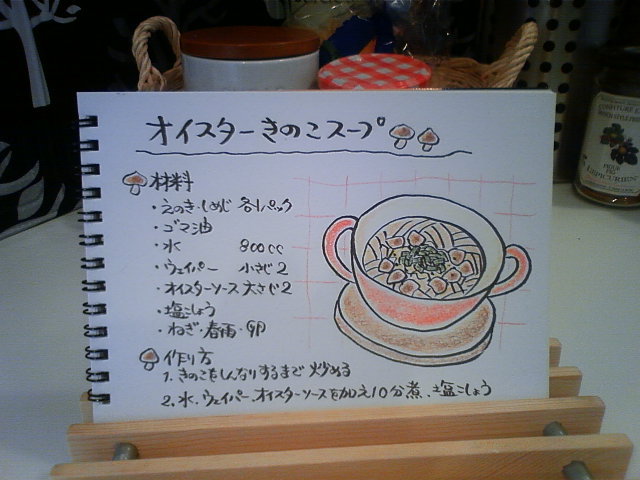 オイスターきのこスープ
材料
・えのき・しめじ 各1パック
・ゴマ油
・水 800cc
・ウェイパー 小さじ2
・オイスターソース 大さじ2
・塩こしょう
・ねぎ・春雨・卵
作り方
1. きのこをしんなりするまで炒める
2. 水、ウェイパー、オイスターソースを加え10分煮、塩こしょう